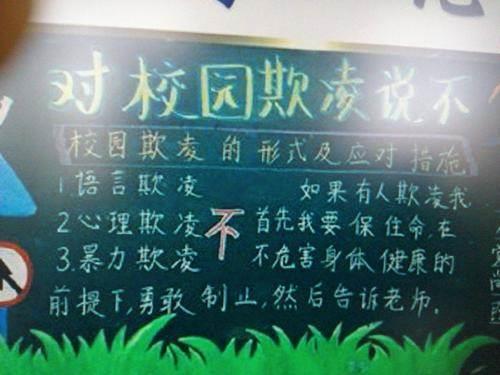 对校园欺凌说不
校园欺凌的形式及应对措施
1语言欺凌
2心理欺凌
3.暴力欺凌
不
如果有人欺凌我,
首先我要保住命,在
不危害身体健康的
前提下,勇敢制止,然后告诉老师.